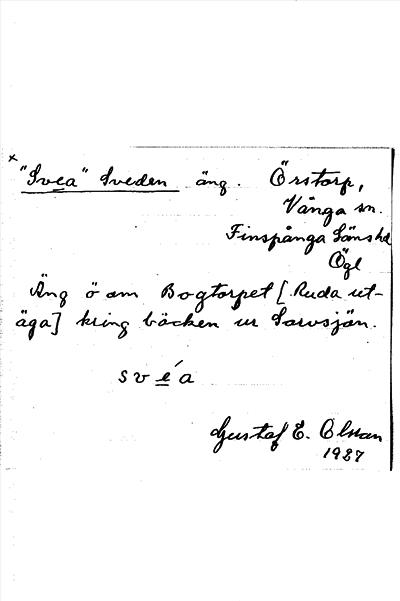 x
"Svea" Sveden äng. Örstorp,
Vånga sn.
Finspånga Länshd
Ögl
Äng ö om Bogtorpet [Ruda ut-
äga] kring bäcken ur Sarvsjön.
svéa
Gustaf E. Olsson
1927